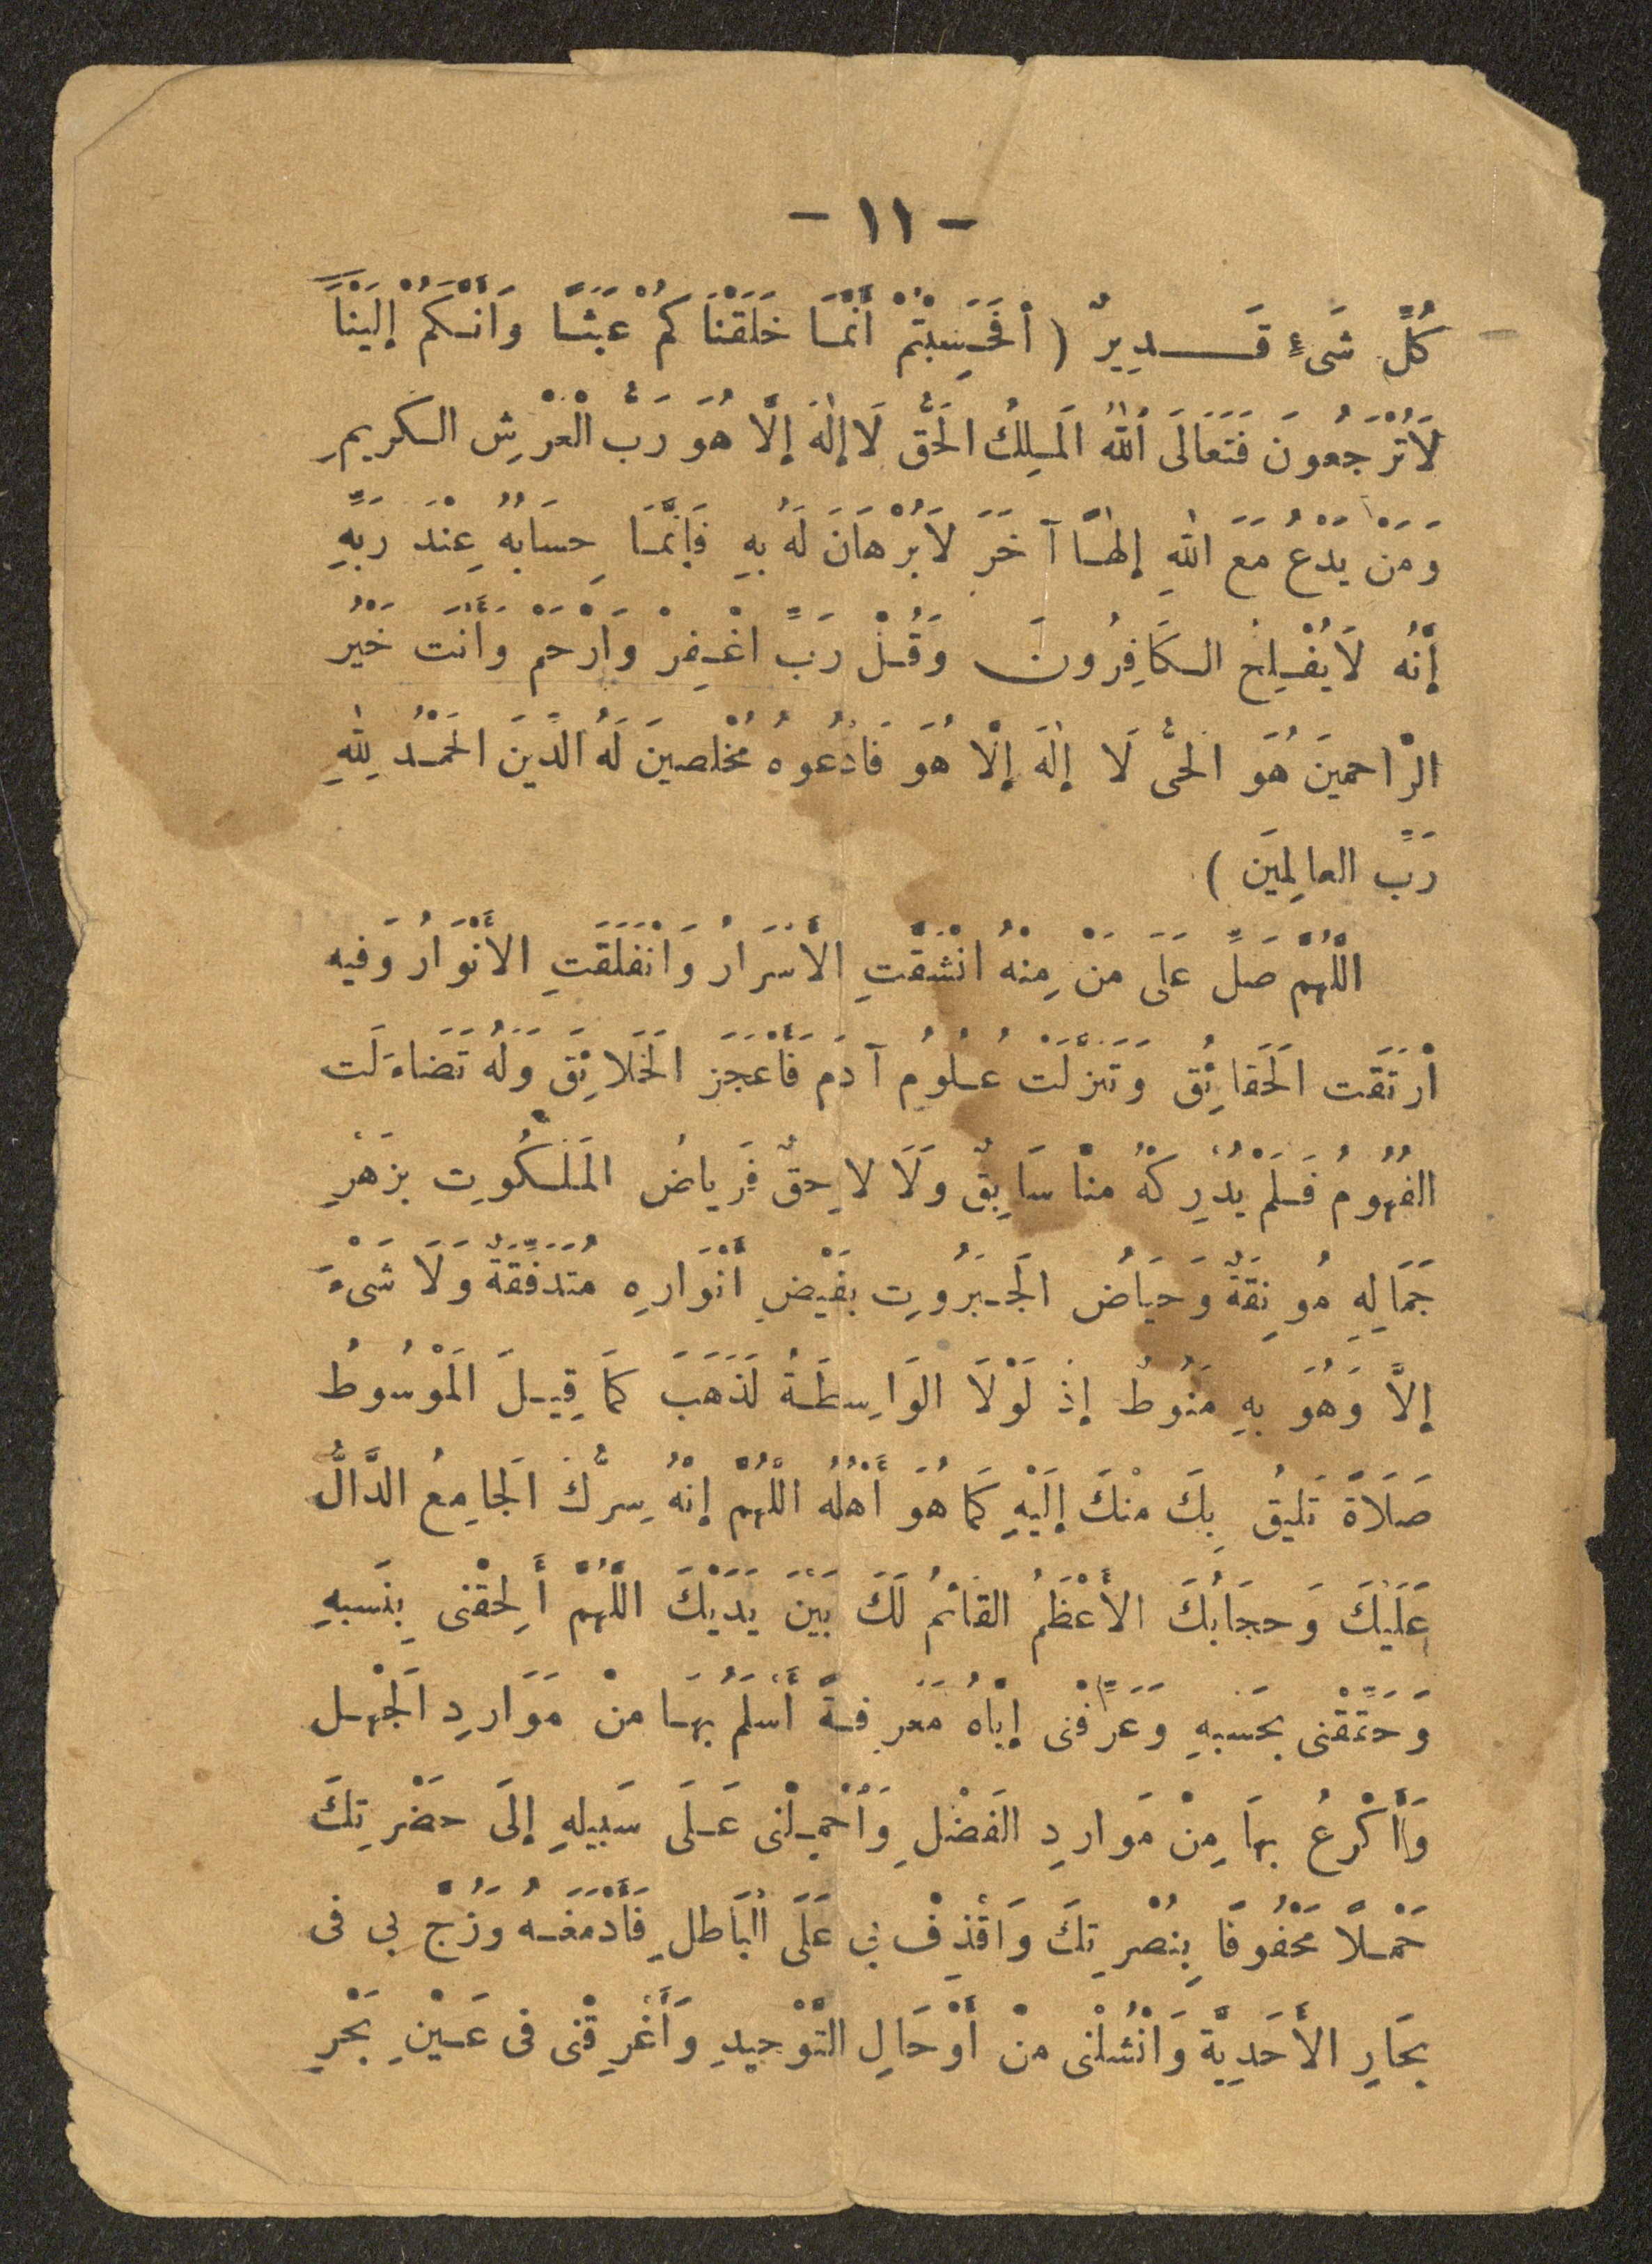 - ١١ -
كُلِّ شَىْءٍ قَـدِيرٌ ( أَفَحَسِبْتُمْ أَنَّمَا خَلَقْنَاكُمْ عَبَثًا وَأَنَّكُمْ إِلَيْنَا
لَاتُرْجَعُونَ فَتَعَالَى ٱللهُ المَلِكُ الحَقُّ لَا إِلٰهَ إِلَّا هُوَ رَبُّ الْعَرْشِ الكَرِيمِ
وَمَنْ يَدْعُ مَعَ اللهِ إِلٰهًا آخَرَ لَابُرْهَانَ لَهُ بِهِ فَإِنَّمَا حِسَابُهُ عِنْدَ رَبِّهِ
إِنَّهُ لَايُفْلِحُ الكَافِرُونَ وَقُلْ رَبِّ اغْفِرْ وَارْحَمْ وَأَنْتَ خَيْرُ
الرَّاحِمِينَ هُوَ الحَىُّ لَا إِلٰهَ إِلَّا هُوَ فَادْعُوهُ مُخْلِصِينَ لَهُ الدِّينَ الحَمْدُ لِلهِ
رَبِّ العالَمِينَ )
اللّٰهُمَّ صَلِّ عَلَى مَنْ مِنْهُ انْشَقَّتِ الأَسْرَارُ وَانْفَلَقَتِ الأَنْوَارُ وَفِيهِ
ارْتَقَت الحَقَائِقُ وَتَنَزَّلَتْ عُلُومُ آدَمَ فَأَعْجَزَ الخَلَائِقَ وَلَهُ تَضَاءَلَت
الفُهُومُ فَلَمْ يُدْرِكْهُ مِنَّا سَابِقٌ وَلَا لاحِقٌ فَرِياضُ المَلَكُوتِ بِزَهْرِ
جَمَالِهِ مُونِقَةٌ وَحِيَاضُ الجَبَرُوتِ بِفَيْضِ أَنْوَارِهِ مُتَدَفِّقَةٌ وَلَا شَىْءَ
إِلاَّ وَهُوَ بِهِ مَنُوطٌ إِذْ لَوْلَا الوَاسِطَةُ لَذَهَبَ كَمَا قِيلَ المَوْسُوطُ
صَلَاةً تَلِيقُ بِكَ مِنْكَ إِلَيْهِ كَمَا هُوَ أَهْلُهُ اللّٰهُمَّ إِنَّهُ سِرُّكَ الجَامِعُ الدَّالُّ
عَلَيْكَ وَحِجَابُكَ الأَعْظَمُ القَائِمُ لَكَ بَيْنَ يَدَيْكَ اللّٰهُمَّ أَلْحِقْنى بِنَسَبِهِ
وَحَقِّقْنى بِحَسَبِهِ وَعَرِّفْنى إِيَّاهُ مَعْرِفَةً أَسْلَمُ بِهَا مِنْ مَوَارِدِ الجَهْلِ
وَأَكْرَعُ بِهَا مِنْ مَوَارِدِ الفَضْلِ وَاحْمِلْنى عَلَى سَبِيلِهِ إِلَى حَضْرَتِكَ
حَمْلًا مَحْفُوفًا بِنُصْرَتِكَ وَاقْذِفْ بِى عَلَى البَاطِلِ فَأَدْمَغَهُ وَزُجَّ بِى فى
بِحَارِ الأَحَدِيَّةِ وَانْشُلْنى مِنْ أَوْحَالِ التَّوْحِيدِ وَأَغْرِقْنى فى عَيْنِ بَحْرِ